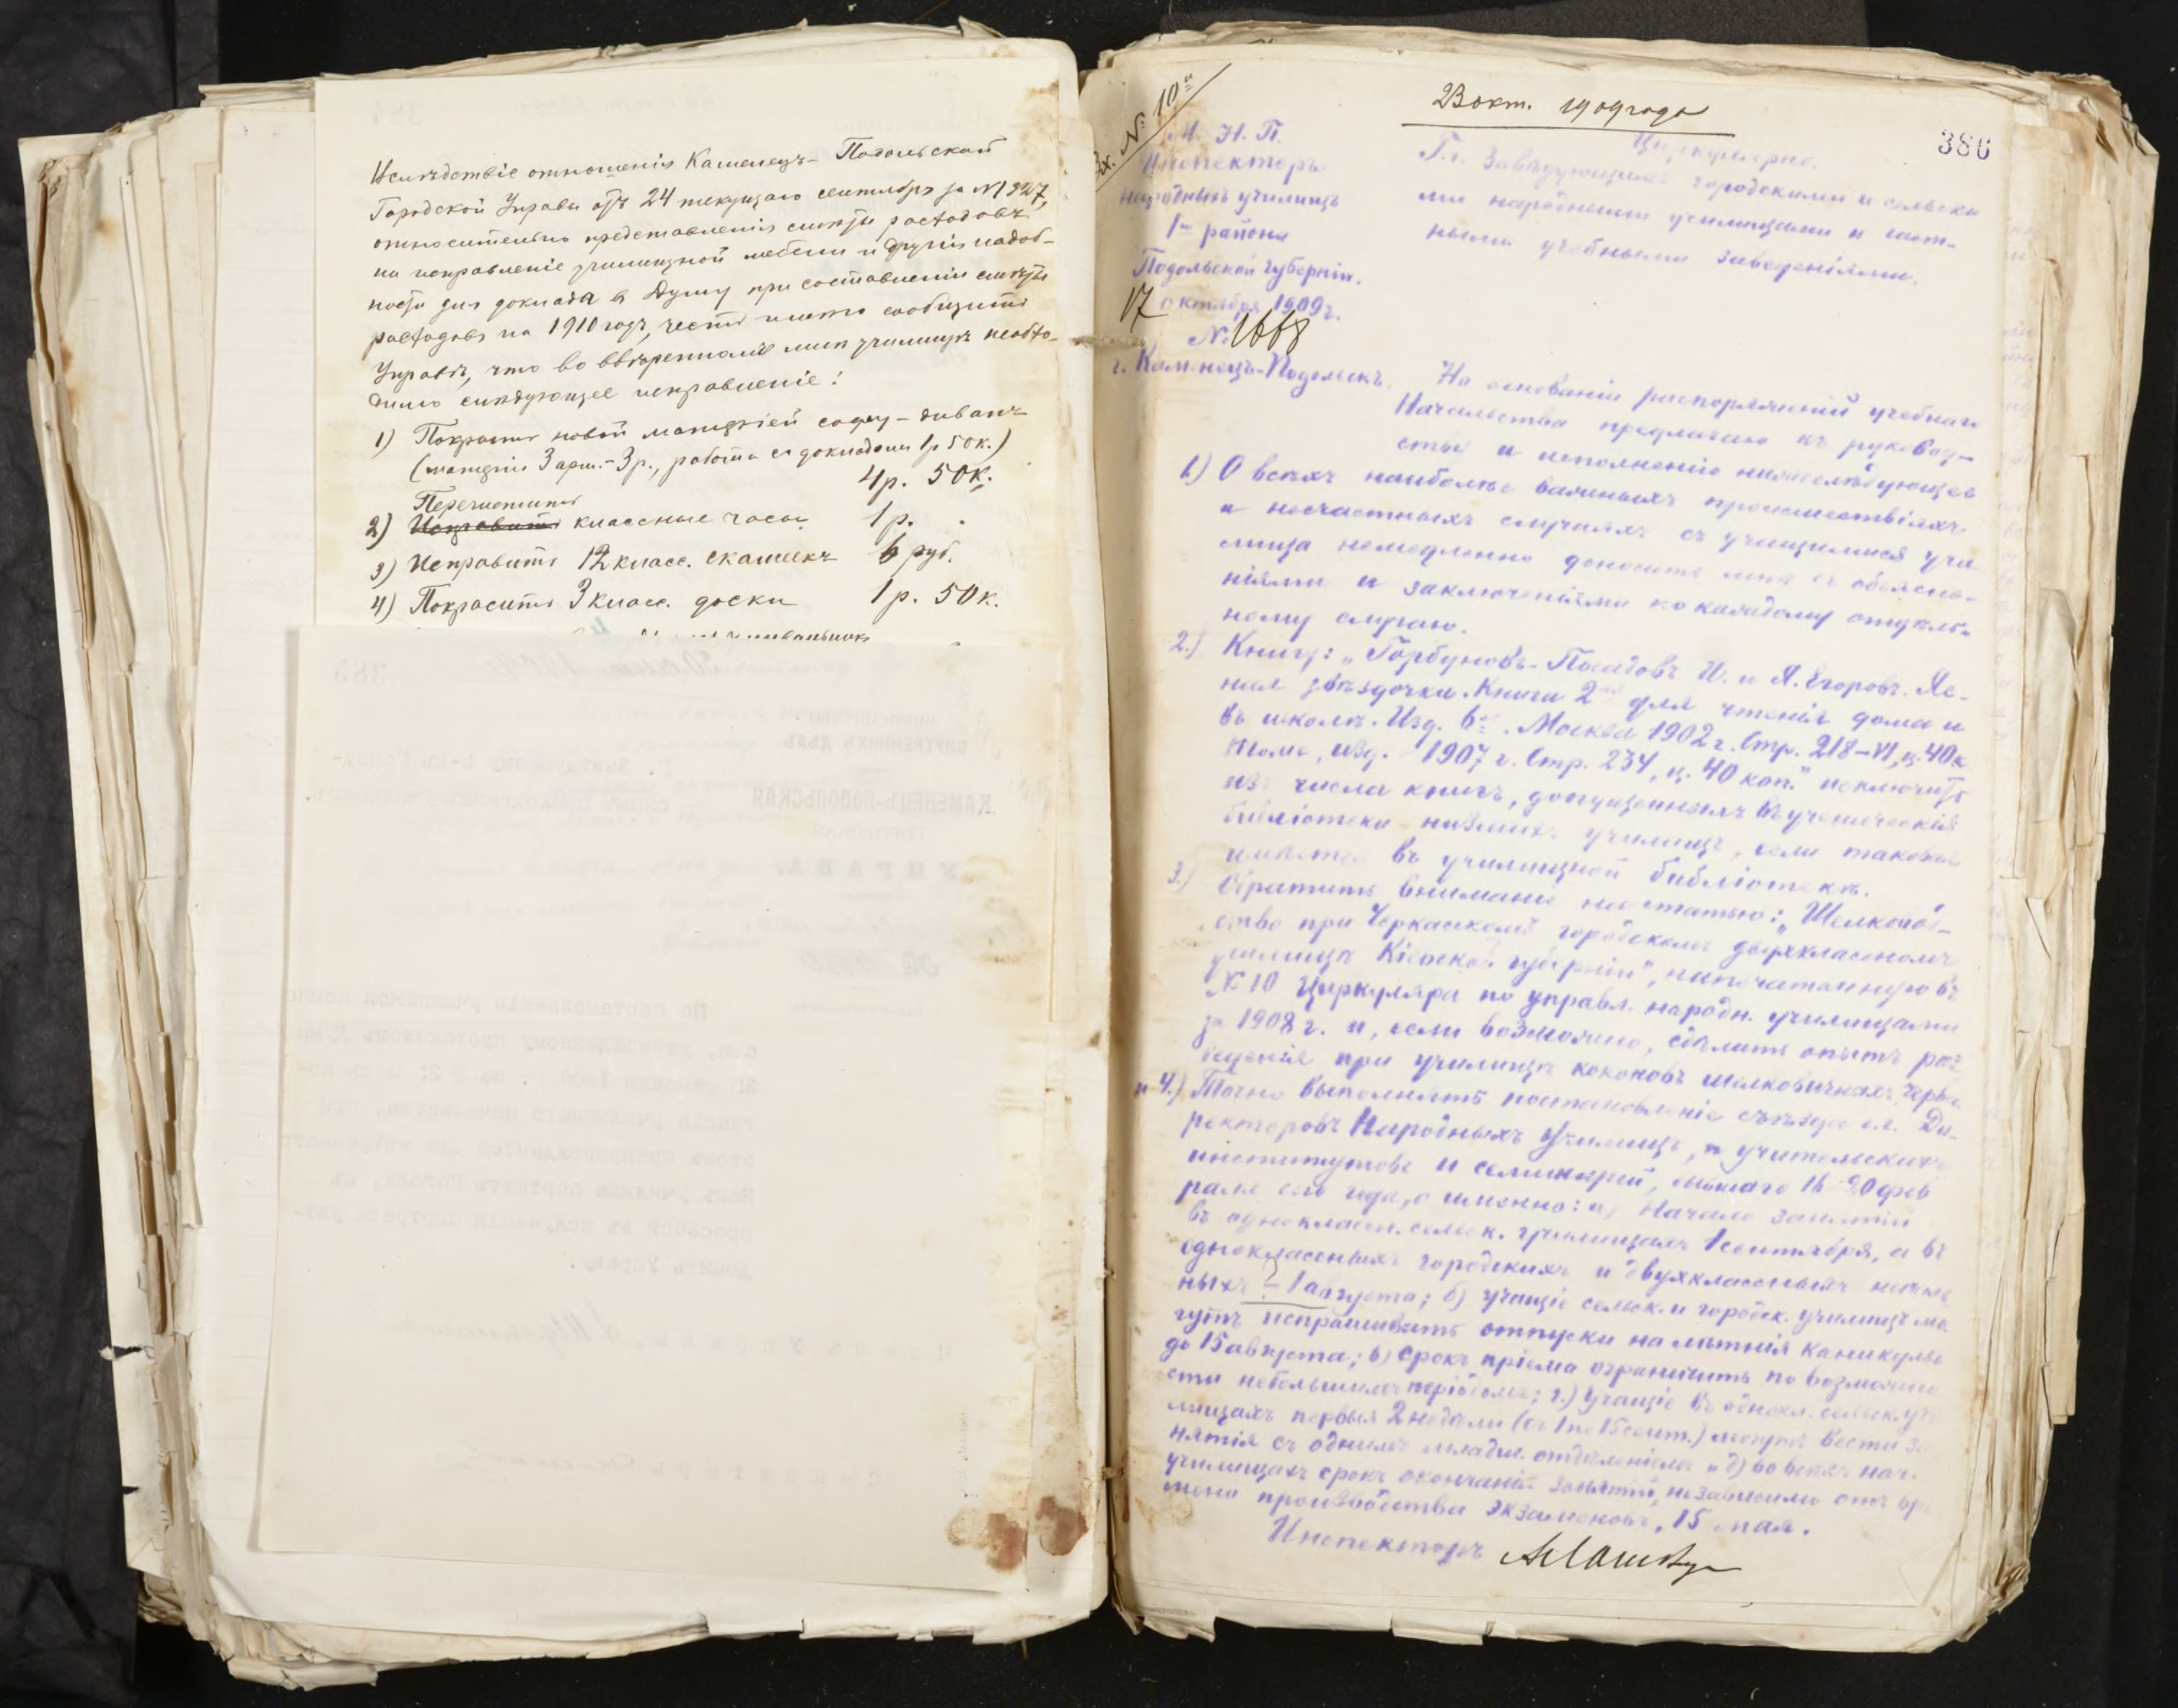 Вслѣдствіе отношенія Каменецъ-Подольской
Городской Управы отъ 24 текущаго сентября за №
относительно представленія смѣты расходовъ
на исправленіе училищной мебели и другія надоб-
ности для доклада въ Думу при составленіи смѣты
расходовъ на 1910 годъ, честь имѣю сообщить
Управѣ, что во ввѣренномъ мнѣ училищѣ необхо-
димо слѣдующее исправленіе:
1) Покрыть новой матеріей софу-диванъ
(матерія 3 арш.-3 р., работа съ докладомъ 1 р 50 к.)
4 р. 50 к.
Перечистить
2) Исправить классные часы 1 р.
3) Исправить 12 класс. скамеекъ 6 руб.
4) Покрасить 3 класс. доски 1 р. 50 к.
Вх. № 10
23 окт. 1909 года
386
М. Н. П.
Инспекторъ
народныхъ училищъ
1го района
Подольской губерніи.
17 октября 1909 г.
№ 1668
г. Каменецъ-Подольскъ.
Циркулярно.
Г.г. Завѣдующимъ городскими и сельски
ми народными училищами и част-
ными учебными заведеніями.
На основаніи распоряженій учебнаго
Начальства предлагаю къ руковод-
ству и исполненію нижеслѣдующее
1.) О всѣхъ наиболѣе важныхъ происшествіяхъ
и несчастныхъ случаяхъ съ учащимися учи
лища немедленно доносить мнѣ съ объясне-
ніями и заключеніями по каждому отдѣль-
ному случаю.
2.) Книгу: „Горбуновъ-Посадовъ И. и Я. Егоровъ. Яс-
ная звѣздочка. Книга 2ая для чтенія дома и
въ школѣ. Изд. 6ое. Москва 1902 г. Стр. 218-VI, ц. 40 к
Тоже, изд. 1907 г. Стр. 234, ц. 40 коп." исключить
изъ числа книгъ, допущенныхъ въ ученическія
библіотеки низшихъ училищъ, если таковая
имѣется въ училищной библіотекѣ.
3.) Обратить вниманіе на статью: „Шелковод-
ство при Черкасскомъ городскомъ двухклассномъ
училищѣ Кіевской губерніи", напечатанную въ
№ 10 Циркуляра по управл. народн. училищами
за 1908 г. и, если возможно, сдѣлать опытъ раз
веденія при училищѣ коконовъ шелковичныхъ черв
и 4.) Точно выполнять постановленіе съѣзда г.г. Ди-
ректоровъ Народныхъ Училищъ, и учительскихъ
институтовъ и семинарій, бывшаго 16-20 фев
раля сего года, а именно: а) Начало занятій
въ однокласн. сельск. училищахъ 1 сентября, а въ
одноклассныхъ городскихъ и двухклассныхъ
ныхъ - 1 августа; б) учащіе сельск. и городск. училищъ мо
гутъ испрашивать отпуски на лѣтнія каникулы
до 15 августа; в) срокъ пріема ограничить по возможно
сти небольшимъ періодомъ; г.) учащіе въ однокл. сельск. учи
лищахъ первыя 2 недѣли (съ 1 по 15 сент.) могутъ вести за
нятія съ однимъ младш. отдѣленіемъ и д) во всѣхъ нач.
училищахъ срокъ окончанія занятій, независимо отъ вре
мени производства экзаменовъ, 15 мая.
Инспекторъ